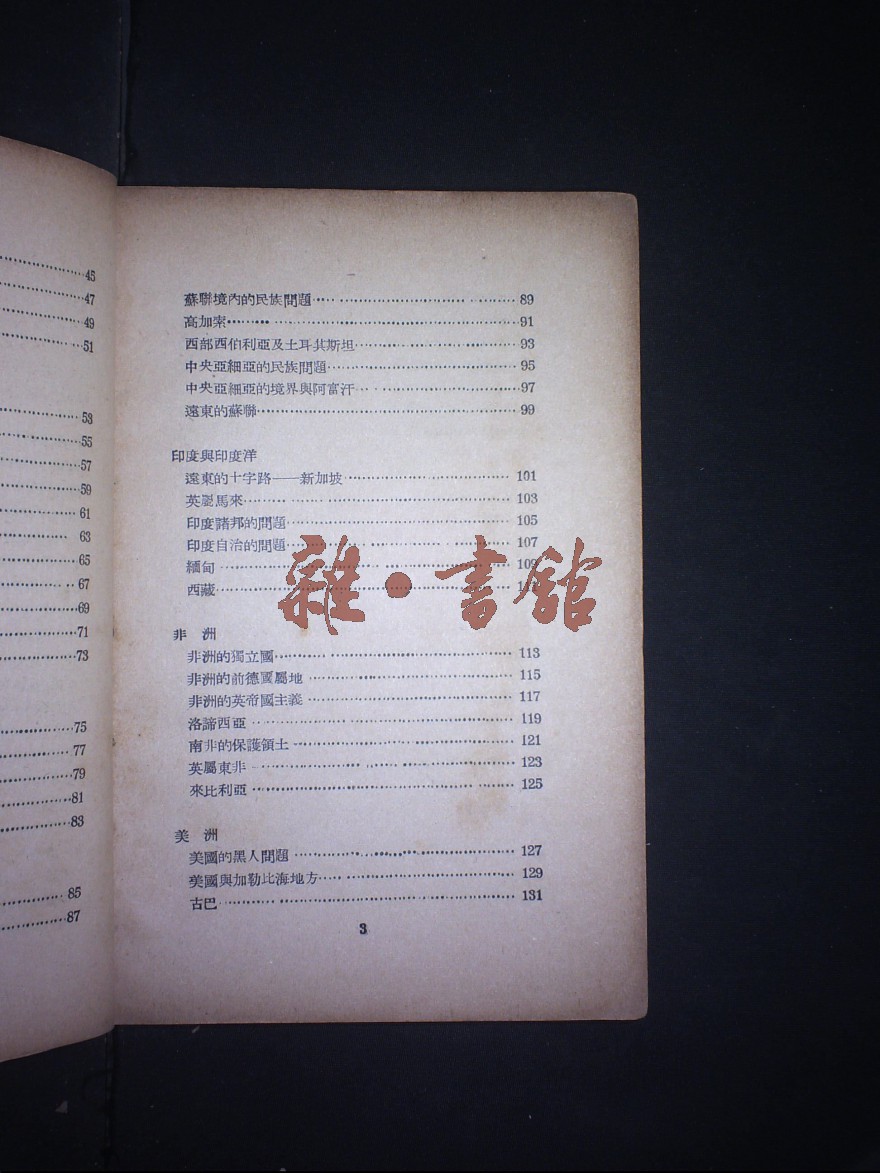 45
47
49
51
53
55
57
59
61
63
65
67
69
71
73
75
77
79
81
83
85
87
蘇聯境內的民族問題 89
高加索 91
西部西伯利亞及土耳其斯坦 93
中央亞細亞的民族問題 95
中央亞細亞的境界與阿富汗 97
遠東的蘇聯 99
印度與印度洋
遠東的十字路——新加坡 101
英屬馬來 103
印度諸邦的問題 105
印度自治的問題 107
緬甸 109
西藏
雜·書館
非洲
非洲的獨立國 113
非洲的前德國屬地 115
非洲的英帝國主義 117
洛諦西亞 119
南非的保護領土 121
英屬東非 123
來比利亞 125
美洲
美國的黑人問題 127
美國與加勒比海地方 129
古巴 131
3